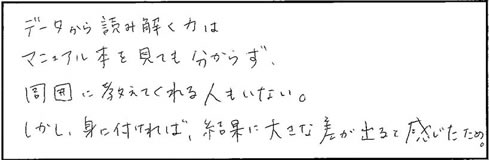 データから読み解く力は
マニュアル本を見ても分からず、
周囲に教えてくれる人もいない。
しかし、身に付ければ、結果に大きな差が出ると感じたため。